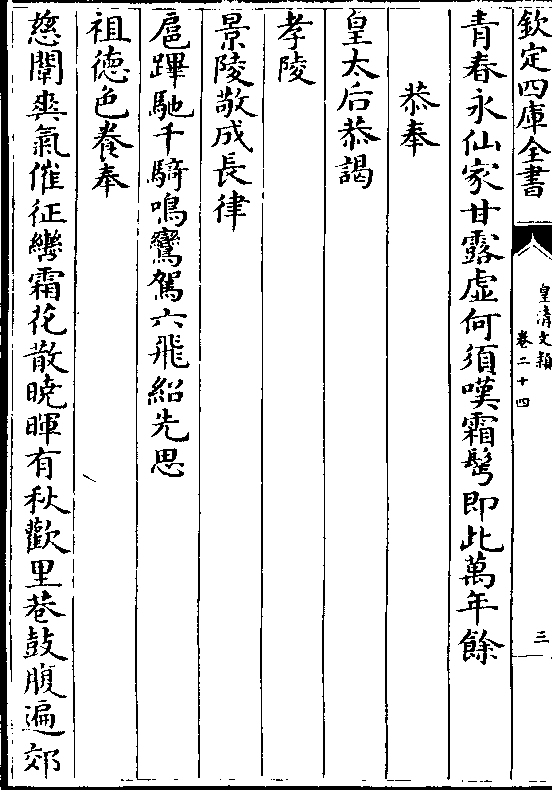 欽定四庫全書
皇清文穎
卷二十四
三
青春永仙家甘露虛何須嘆霜髩即此萬年餘
恭奉
皇太后恭謁
孝陵
景陵敬成長律
扈蹕馳千騎鳴鸞駕六飛紹先思
祖德色養奉
慈闈爽氣催征轡霜花散曉暉有秋歡里巷鼓腹遍郊